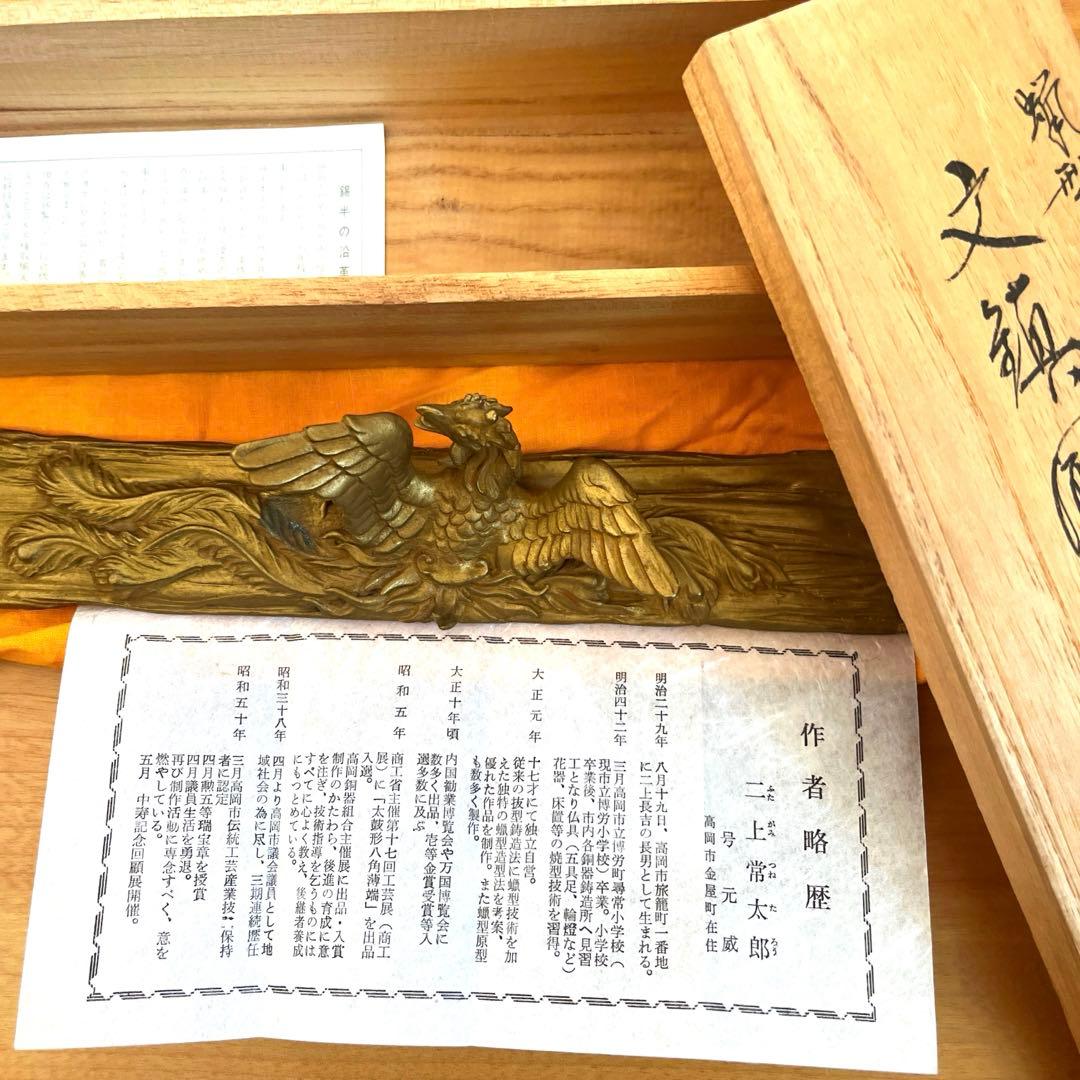 蝋型
文鎮
錫半の沿革
作者略歴
二上常太郎
ふたがみつねたろう
号元威
高岡市金屋町在住
明治二十九年
八月十九日、高岡市旅籠町一番地
に二上長吉の長男として生まれる。
明治四十二年
三月高岡市立博労町尋常小学校(
現市立博労小学校)卒業。小学校
卒業後、市内各銅器鋳造所へ見習
工となり仏具(五具足、輪燈など)
花器、床置等の焼型技術を習得。
大正元年
十七才にて独立自営。
従来の抜型鋳造法に蠟型技術を加
えた独特の蠟型造型法を考案、
優れた作品を制作。また蠟型原型
も数多く製作。
大正十年頃
内国勧業博覧会や万国博覧会に
数多く出品、壱等金賞受賞等入
選多数に及ぶ
昭和五年
商工省主催第十七回工芸展(商工
展)に「太鼓形八角薄端」を出品
入選。
高岡銅器組合主催展に出品・入賞
制作のかたわら、後進の育成に意
を注ぎ、技術指導を乞うものには
すべてに心よく教え、後継者養成
にもつとめている。
昭和三十八年
四月より高岡市議会議員として地
域社会の為に尽し、三期連続歴任
昭和五十年
三月高岡市伝統工芸産業技保持
者に認定
四月勲五等瑞宝章を授賞
四月議員生活を勇退。
再び制作活動に専念すべく、意を
燃やしている。
五月 中寿記念回顧展開催。